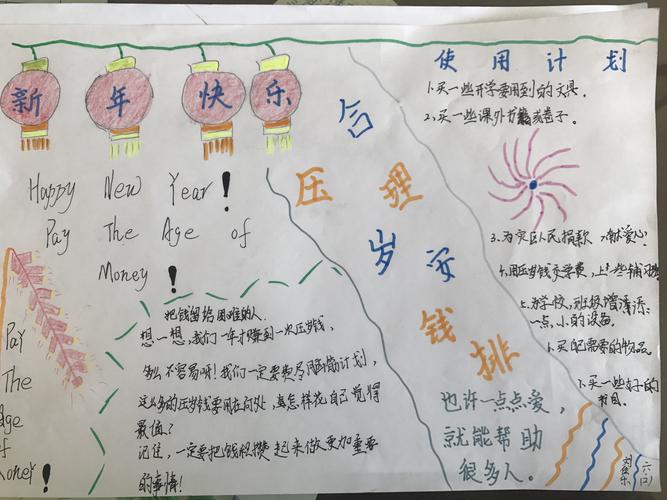 新年快乐
Happy New Year!
Pay The Age of
Money!
Pay
The
Age
of
Money!
把钱留给困难的人
想一想,我们一年才赚到一次压岁钱,
多么不容易呀!我们一定要
计划,
这么多的压岁钱要用在何处,怎样花自己觉得
最值?
记住,一定要把钱积攒起来做更加重要
的事情!
合理安排
压岁钱
使用计划
1.买一些开学要用到的文具。
2.买一些课外书籍或卷子。
3.为灾区人民捐款
献爱心!
4.用压岁钱交学费,上一些辅习
学校,班级增
一点,小的设备。
需要的物品。
买一些好的
书目。
也许一点点爱,
就能帮助
很多人。
六(2)